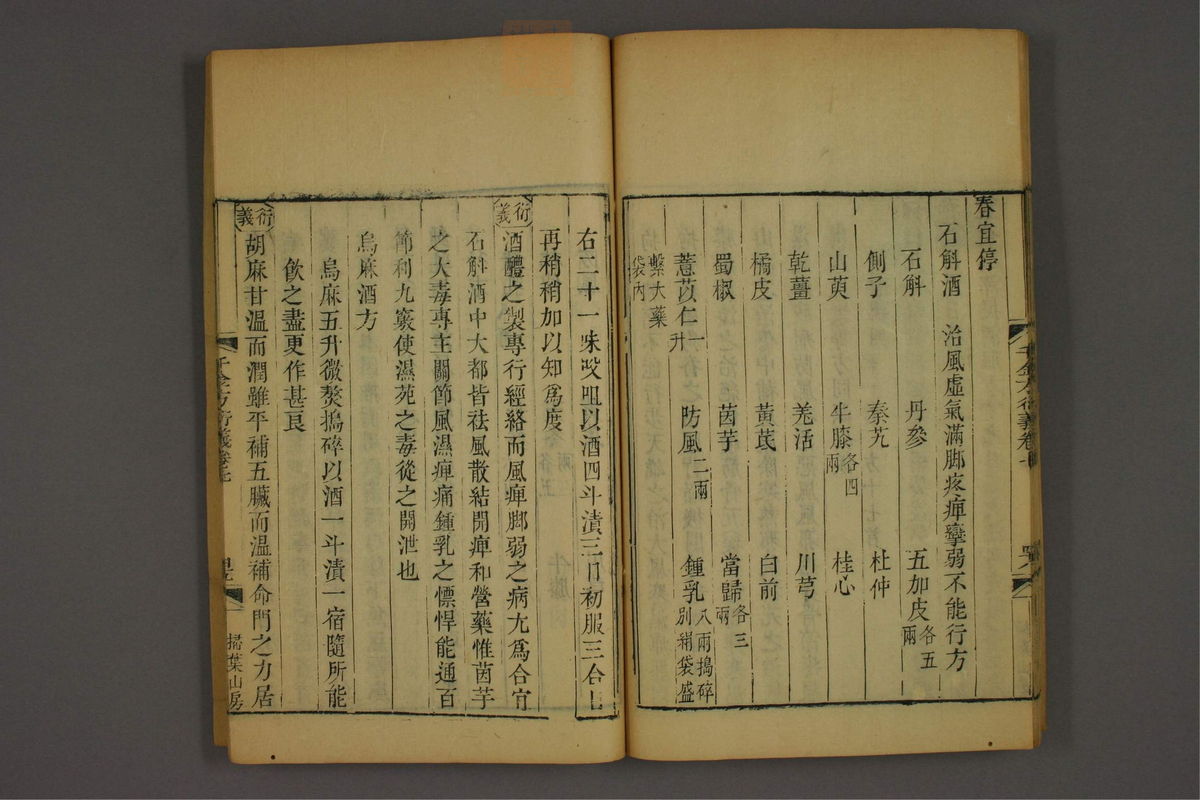 春宜停
石斛酒 治風虛氣滿脚疼痺攣弱不能行方
石斛 丹參 五加皮各五兩
側子 秦艽 杜仲
山萸 牛膝各四兩 桂心
乾薑 羗活 川芎
橘皮 黃芪 白前
蜀椒 茵芋 當歸各三兩
薏苡仁一升 防風二兩 鍾乳八兩搗碎別絹袋盛
繫大藥袋內
右二十一味㕮咀以酒四斗漬三日初服三合日
再稍稍加以知爲度
衍義
酒醴之製專行經絡而風痺脚弱之病尤爲合宜
石斛酒中大都皆祛風散結開痺和營藥惟茵芋
之大毒專主關節風濕痺痛鍾乳之慓悍能通百
節利九竅使濕苑之毒從之開泄也
烏麻酒方
烏麻五升微熬搗碎以酒一斗漬一宿隨所能
飲之盡更作甚良
衍義
胡麻甘溫而潤雖平補五臟而溫補命門之力居
千金方衍義卷七
掃葉山房